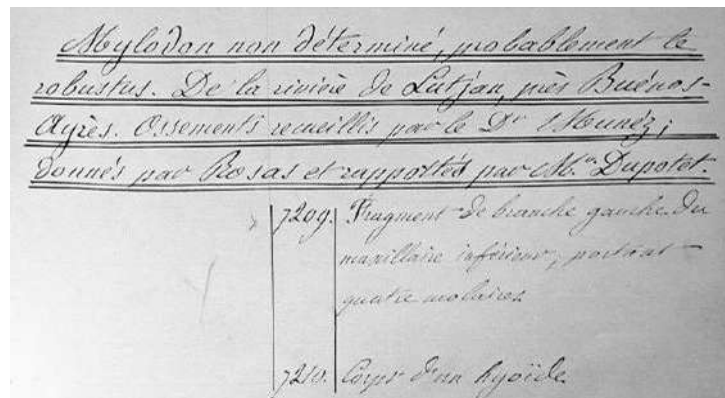 Mylodon non déterminé, probablement le
robustus. De la rivière de Lutjan, près Buénos-
Ayrès. Ossements recueillis par le Dr Munéz;
donnés par Rosas et rapportés par Mr. Dupotet.
7209. Fragment de branche gauche du
maxillaire inférieur, portant
quatre molaires.
7210. Corps d'un hyoïde.